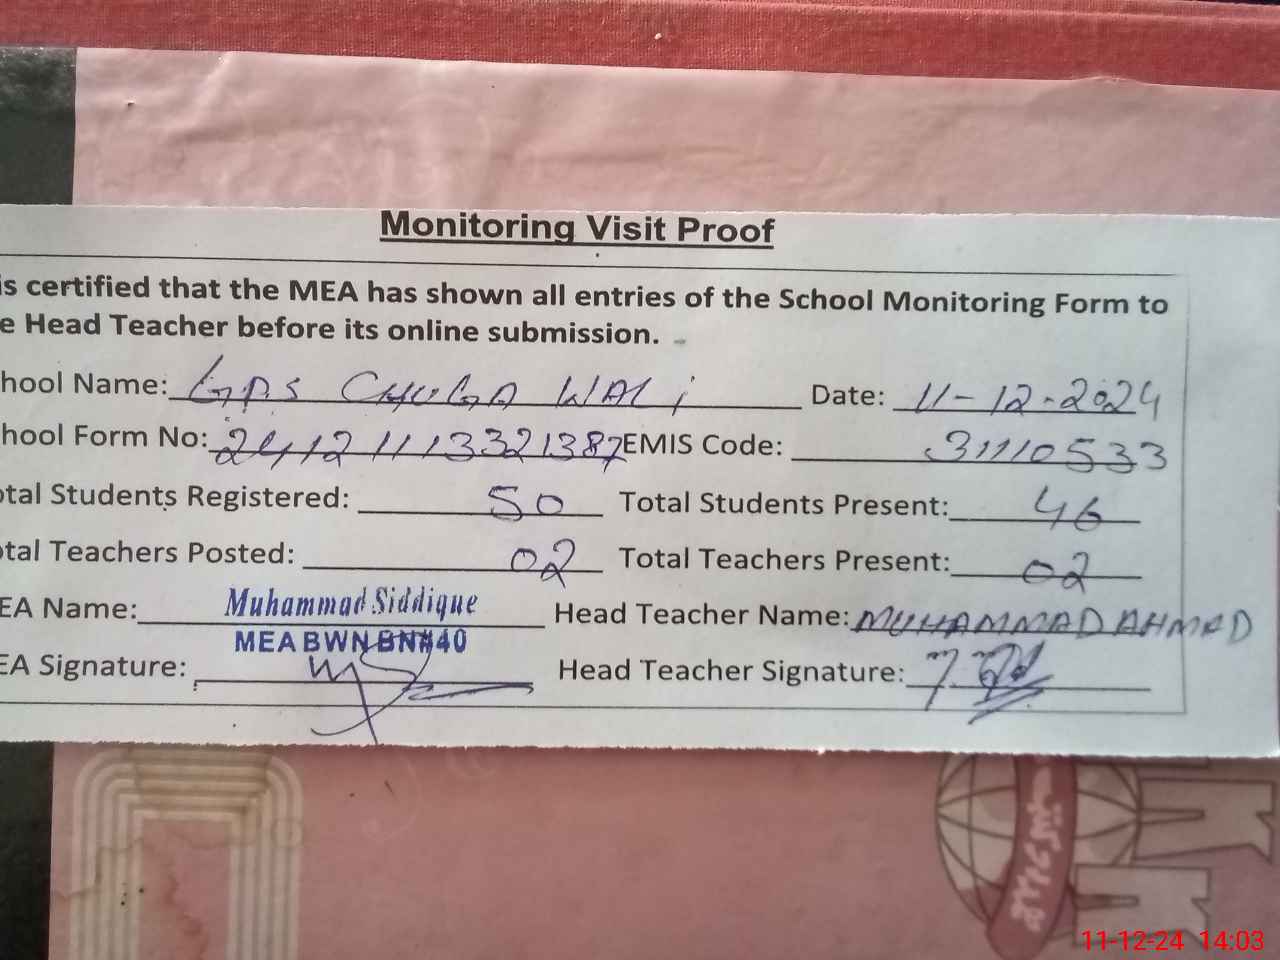 Monitoring Visit Proof
is certified that the MEA has shown all entries of the School Monitoring Form to
e Head Teacher before its online submission.
hool Name: GPS CHUGA WALI Date: 11-12-2024
hool Form No: 24121113321387 EMIS Code: 31110533
otal Students Registered: 50 Total Students Present: 46
otal Teachers Posted: 02 Total Teachers Present: 02
EA Name: Muhammad Siddique Head Teacher Name: MUHAMMAD AHMAD
MEA BWN BN#40
EA Signature: Head Teacher Signature:
11-12-24 14:03